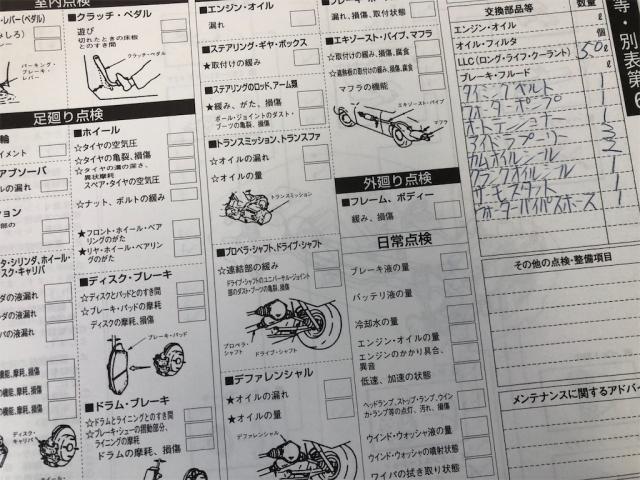 室内点検
レバー(ペダル)
パーキング・
ブレーキ・
レバー
■クラッチ・ペダル
遊び
切れたときの床板
とのすき間
クラッチ・ペダル
足廻り点検
■ホイール
☆タイヤの空気圧
☆タイヤの亀裂、損傷
☆タイヤの溝の深さ、
異状摩耗
スペア・タイヤの空気圧
☆ナット、ボルトの緩み
★フロント・ホイール・ベア
リングのがた
★リヤ・ホイール・ベアリン
グのがた
■ディスク・ブレーキ
☆ディスクとパッドとのすき間
☆ブレーキ・パッドの摩耗
ディスクの摩耗、損傷
ブレーキ・パッド
■ドラム・ブレーキ
☆ドラムとライニングとのすき間
★ブレーキ・シューの摺動部分、
ライニングの摩耗
ドラムの摩耗、損傷
ディスク・
キャリパ
■エンジン・オイル
漏れ
■ステアリング・ギヤ・ボックス
★取付けの緩み
■ステアリングのロッド、アーム類
★緩み、がた、損傷
ボール・ジョイントのダスト・
ブーツの亀裂、損傷
■トランスミッション、トランスファ
☆オイルの漏れ
☆オイルの量
トランスミッション
■プロペラ・シャフト、ドライブ・シャフト
☆連結部の緩み
ドライブ・シャフトのユニバーサル・ジョイント
部のダスト・ブーツの亀裂、損傷
プロペラ・
シャフト
ドライブ・シャフト
■デファレンシャル
★オイルの漏れ
★オイルの量
デファレンシャル
漏れ、損傷、取付状態
■エキゾースト・パイプ、マフラ
☆取付けの緩み、損傷、腐食
☆遮熱板の取付けの緩み、損傷、腐食
マフラの機能
エキゾースト・パイプ
マフラ
外廻り点検
■フレーム、ボディー
緩み、損傷
日常点検
ブレーキ液の量
バッテリ液の量
冷却水の量
エンジン・オイルの量
エンジンのかかり具合、
異音
低速、加速の状態
ヘッドランプ、ストップ・ランプ、ウイン
カ・ランプ等の点灯、汚れ、損傷
ウインド・ウォッシャ液の量
ウインド・ウォッシャの噴射状態
ワイパの拭き取り状態
交換部品等 数量
エンジン・オイル ℓ
オイル・フィルタ 個
LLC(ロング・ライフ・クーラント) 5.0ℓ
ブレーキ・フルード ℓ
タイミングベルト 1
ウォーターポンプ 1
オートテンショナー 1
アイドラプーリー 3
カムオイルシール 2
クランクオイルシール 1
サーモスタット 1
ウォーターバイパスホース 1
その他の点検・整備項目
メンテナンスに関するアドバイ
等・別表第